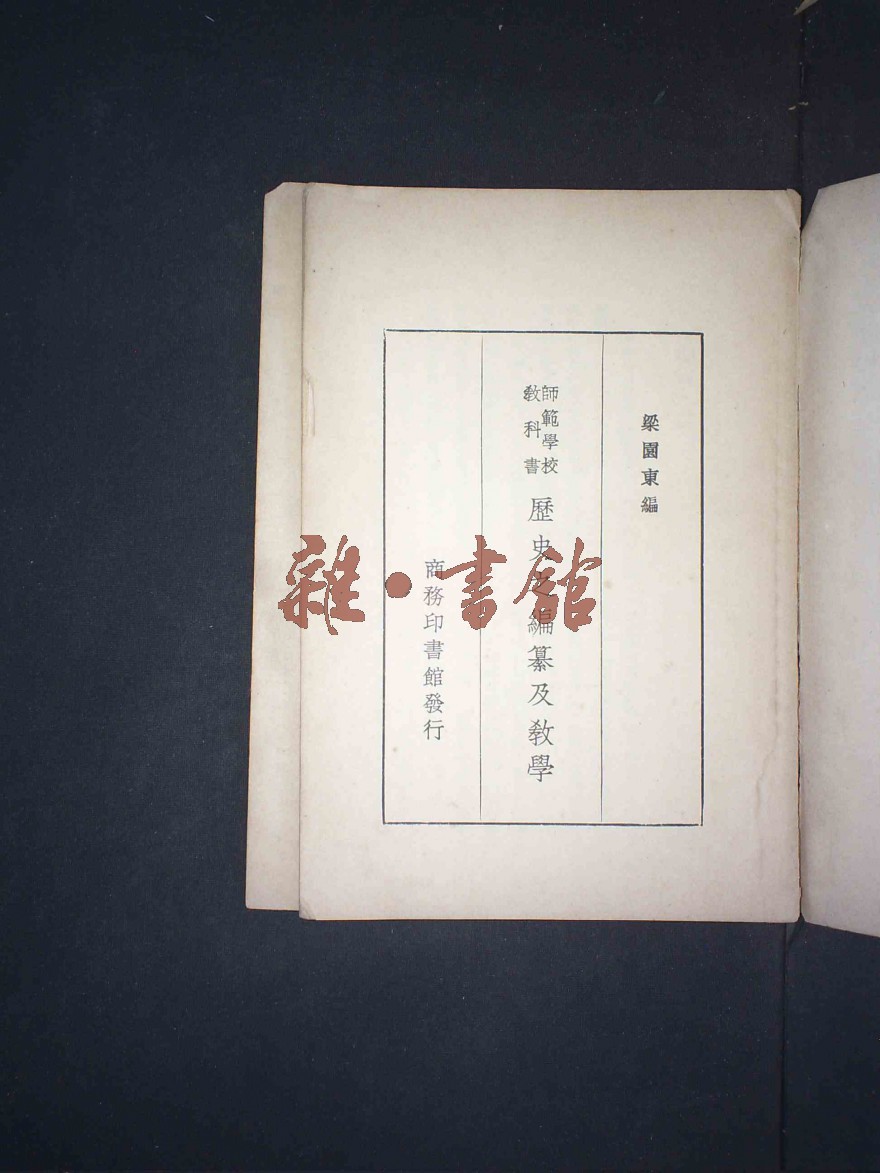 梁園東編
師範學校
教科書
歷史之編纂及教學
商務印書館發行
雜·書館